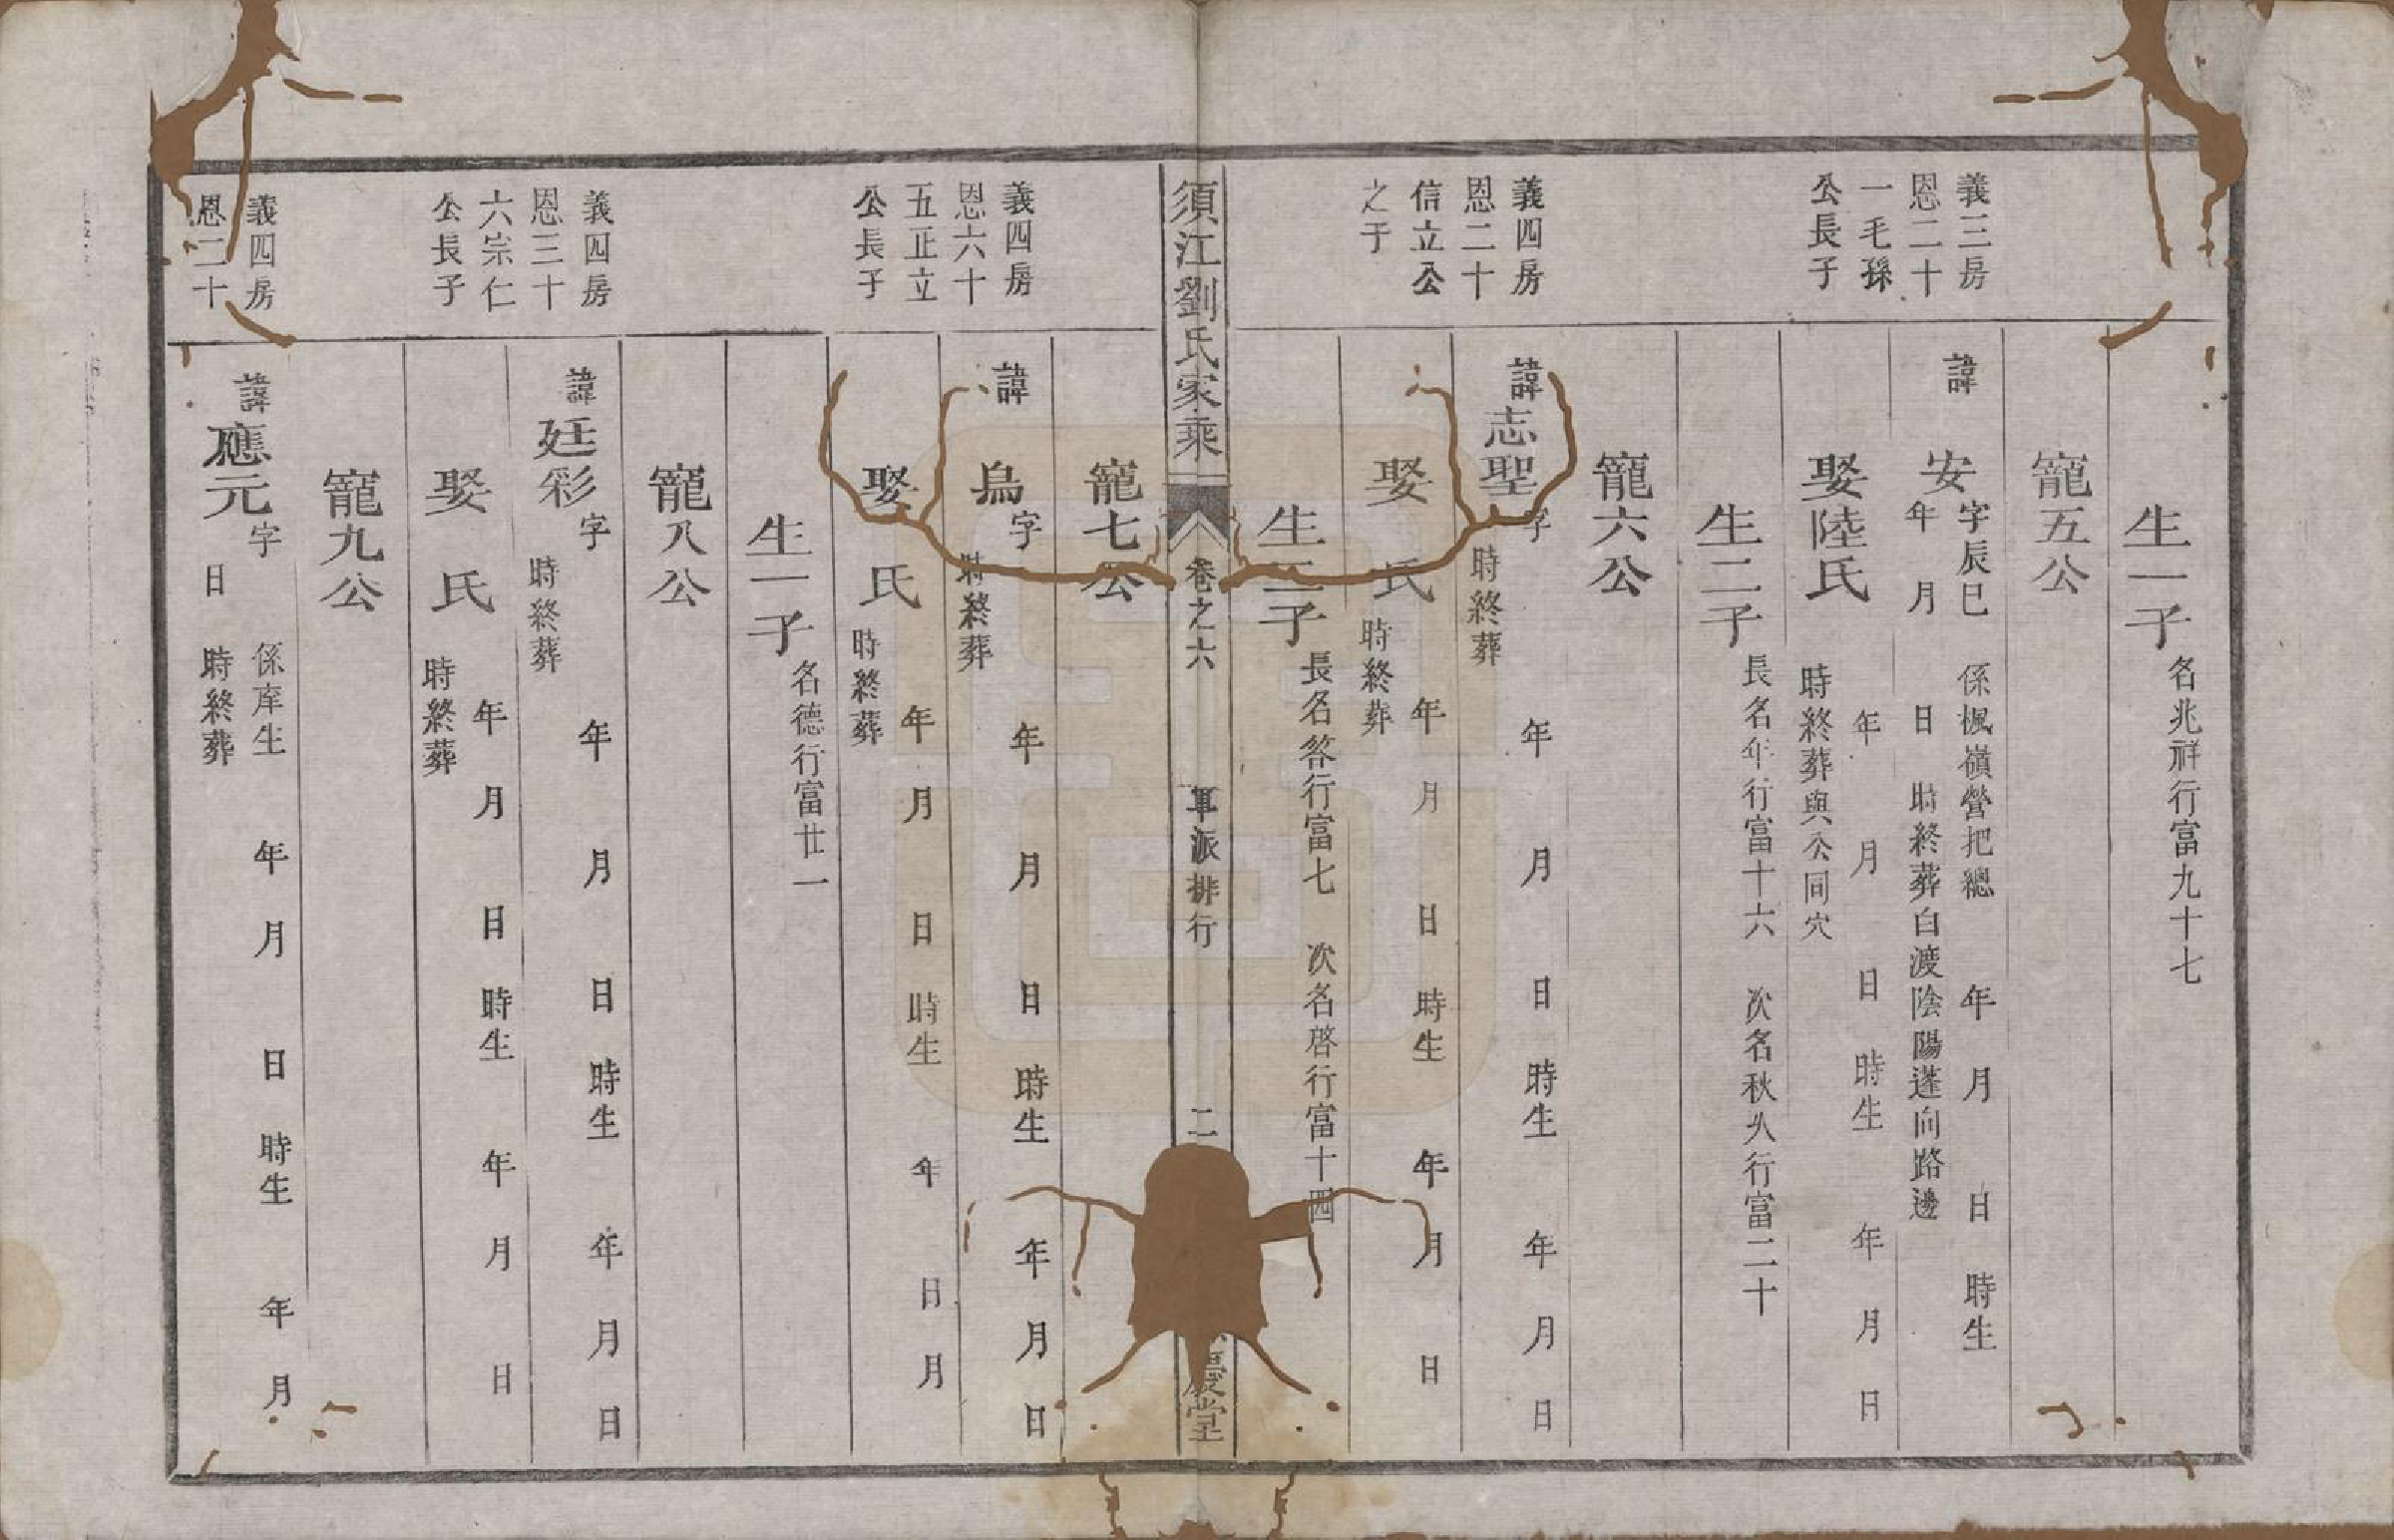 生一子 名兆祥行富九十七
義三房
恩二十
一毛孫
公長子
寵五公
諱 安 字辰巳 係楓嶺營把總 年 月 日 時生
年 月 日 時終葬白渡陰陽蓬向路邊
娶陸氏 年 月 日 時生 年 月 日
時終葬與公同穴
生二子 長名年行富十六 次名秋久行富二十
義四房
恩二十
信立公
之子
寵六公
諱志聖 字 年 月 日 時生 年 月 日
時終葬
娶 氏 年 月 日 時生 年 月 日
時終葬
生二子 長名峉行富七 次名啓行富十四
須江劉氏家乘 卷之六 軍派排行 二 慶堂
義四房
恩六十
五正立
公長子
寵七公
諱 烏 字 年 月 日 時生 年 月 日
時終葬
娶 氏 年 月 日 時生 年 日 月
時終葬
生一子 名德行富廿一
義四房
恩三十
六宗仁
公長子
寵八公
諱廷彩 字 年 月 日 時生 年 月 日
時終葬
娶 氏 年 月 日 時生 年 月 日
時終葬
義四房
恩二十
寵九公
諱應元 字 係庠生 年 月 日 時生 年 月
日 時終葬